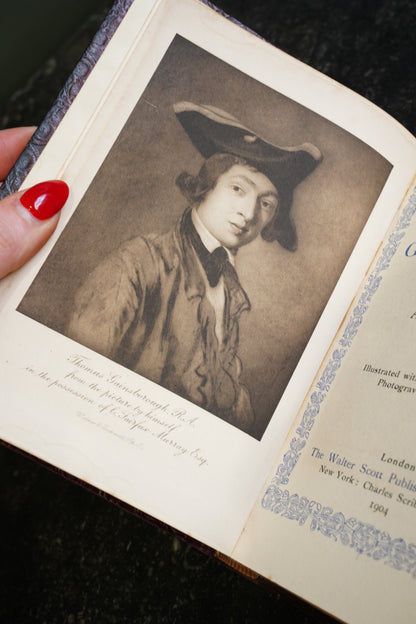 Thomas Gainsborough, R.A.
from the picture by himself
in the possession of C. Fairfax Murray Esqr.
G
A
Illustrated with
Photograv
London
The Walter Scott Publis
New York: Charles Scrib
1904